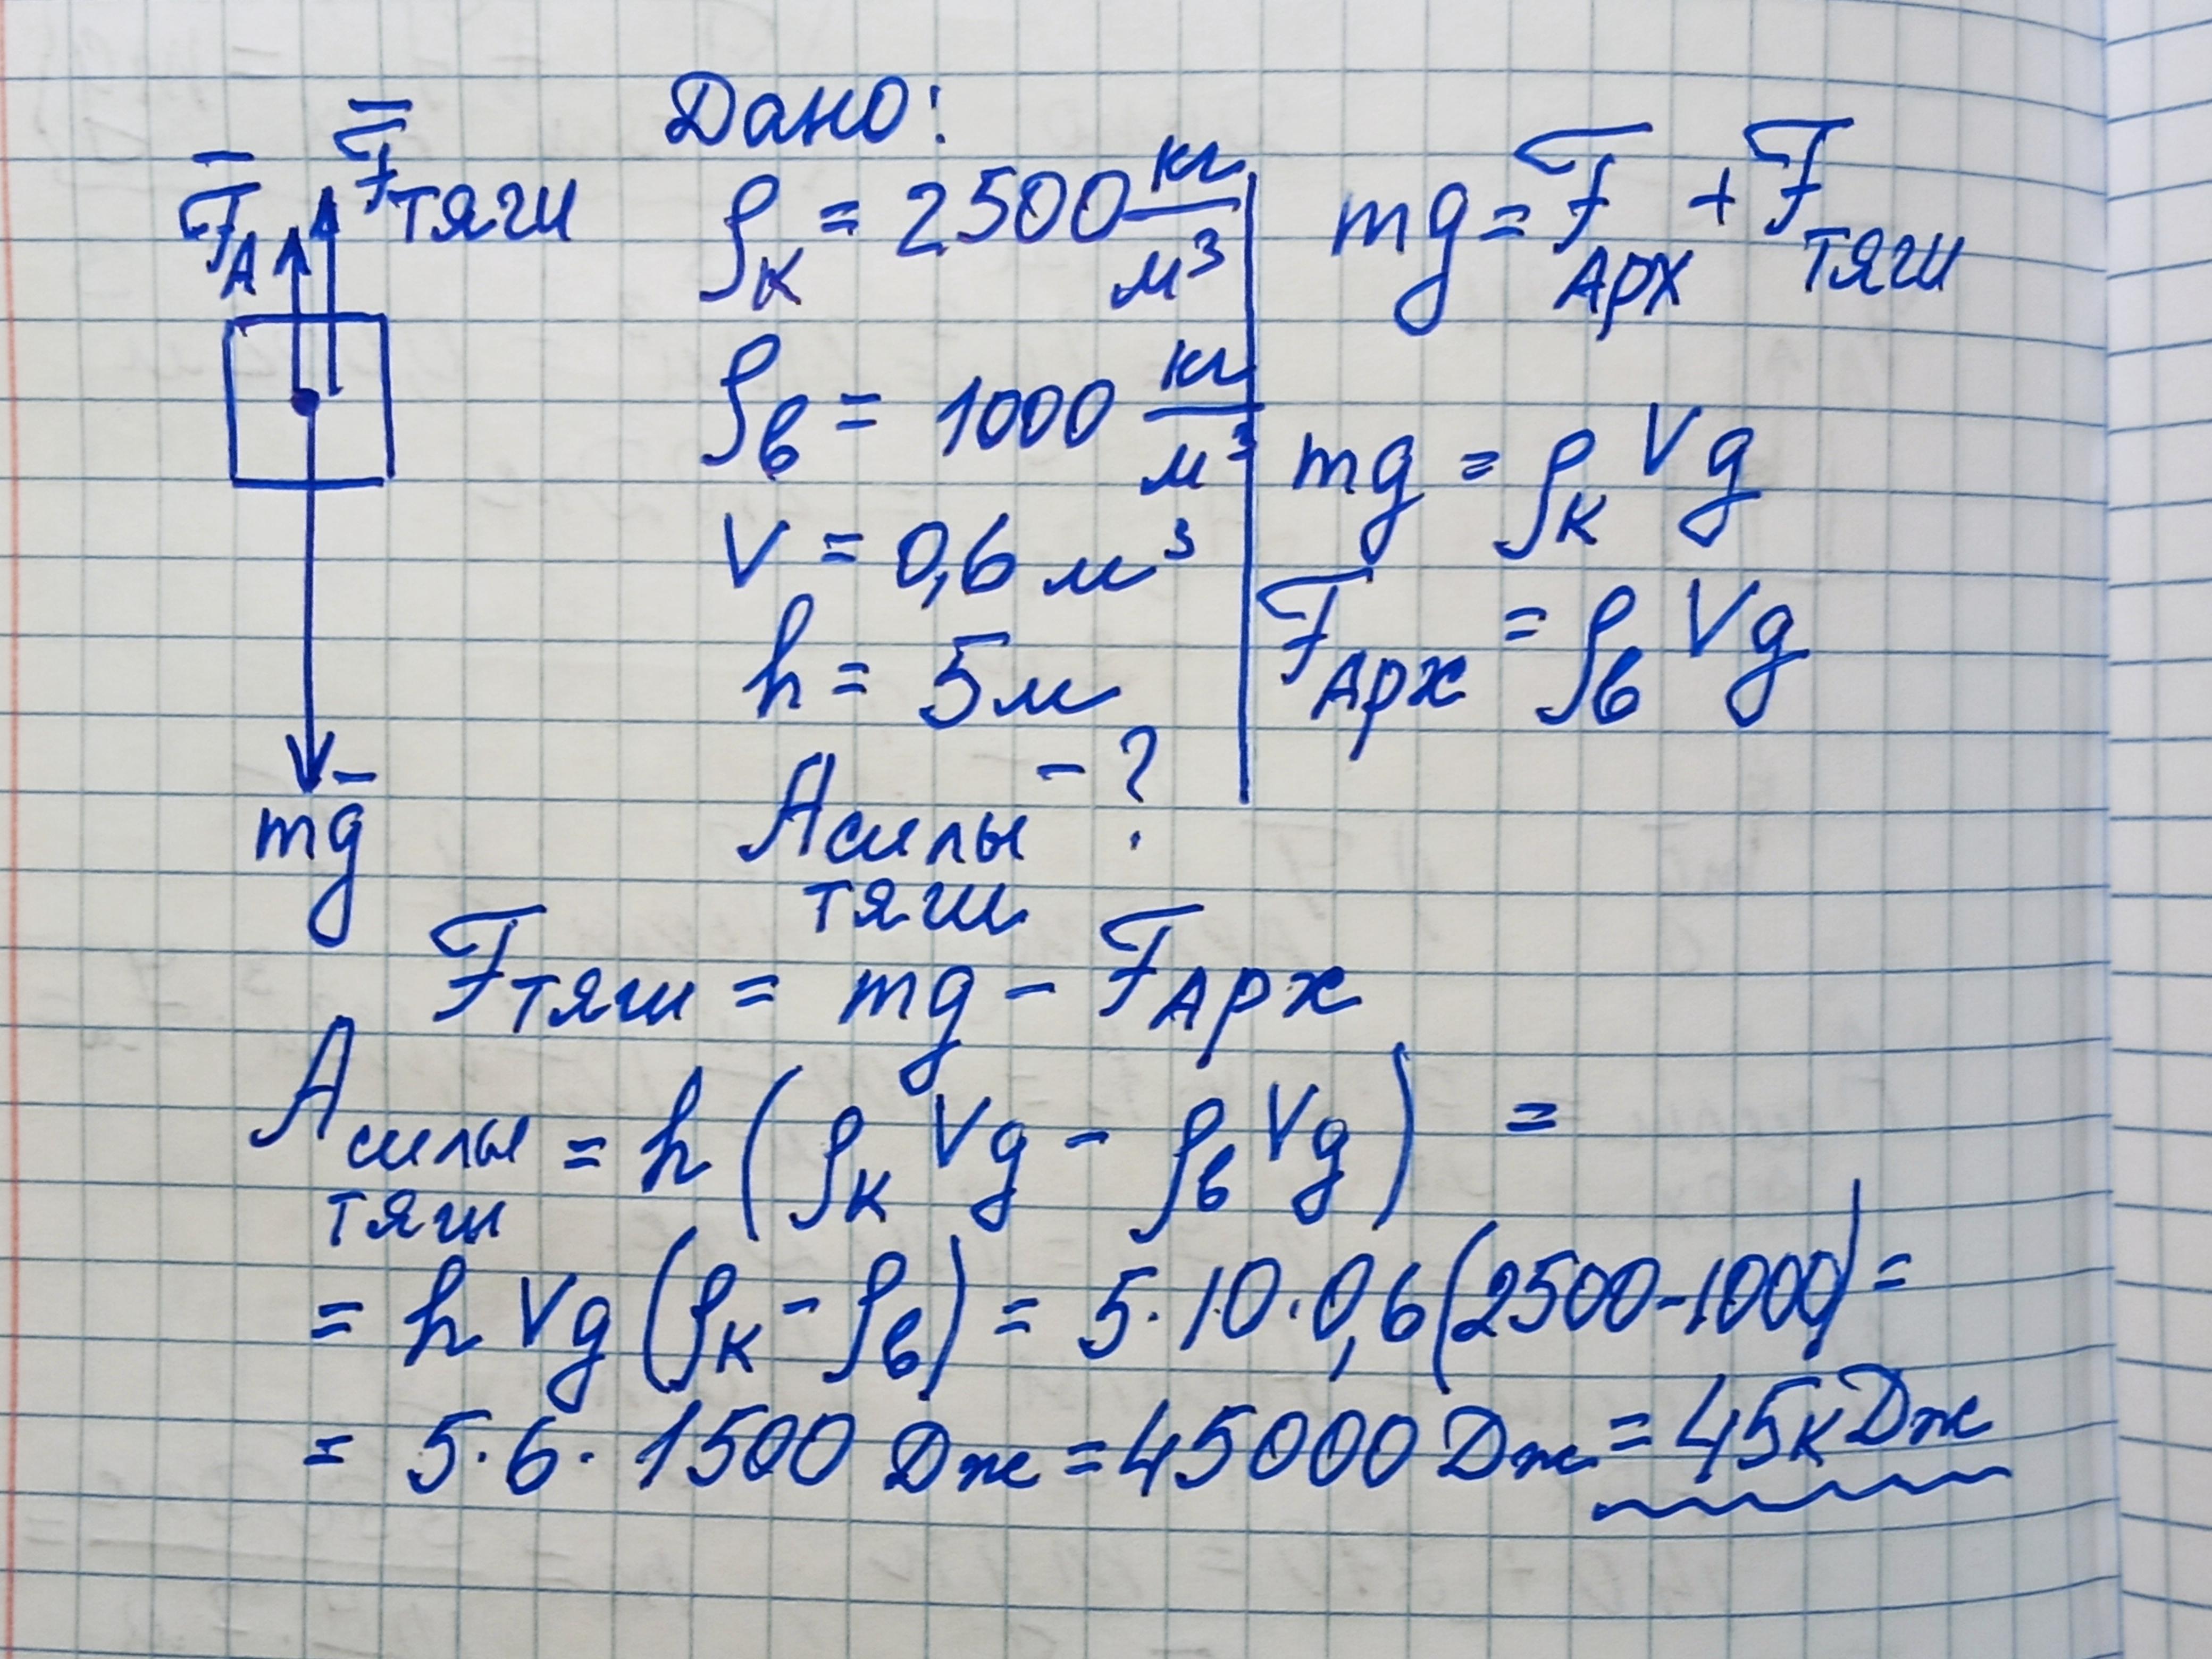 F̅A F̅тяги
mg̅
Дано:
ρк = 2500 кг/м³
ρв = 1000 кг/м³
V = 0,6 м³
h = 5м
Aсилы тяги - ?
mg = FАрх + Fтяги
mg = ρк Vg
FАрх = ρв Vg
Fтяги = mg - FАрх
Aсилы тяги = h (ρк Vg - ρв Vg) =
= h Vg (ρк - ρв) = 5·10·0,6(2500-1000) =
= 5·6·1500 Дж = 45000 Дж = 45кДж